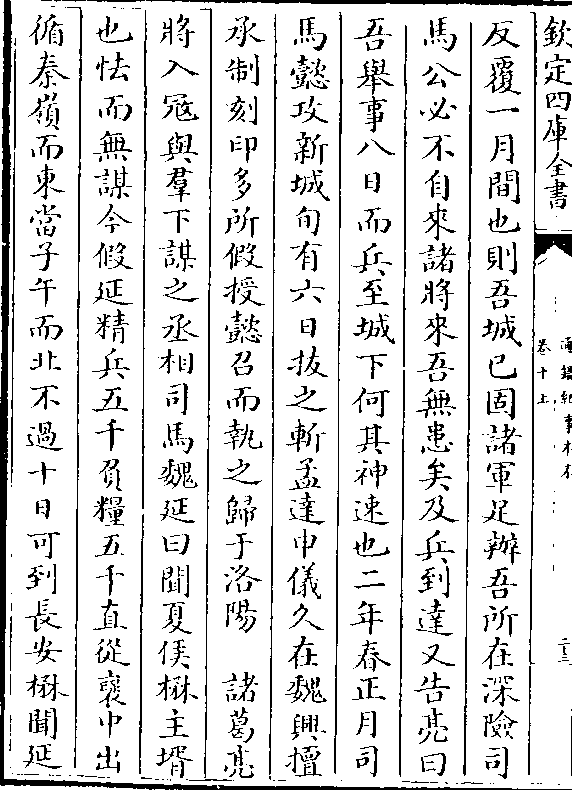 欽定四庫全書
卷十上
反覆一月間也則吾城已固諸軍足辦吾所在深險司
馬公必不自來諸將來吾無患矣及兵到達又告亮曰
吾舉事八日而兵至城下何其神速也二年春正月司
馬懿攻新城旬有六日拔之斬孟達申儀久在魏興擅
承制刻印多所假授懿召而執之歸于洛陽　諸葛亮
將入冦與羣下謀之丞相司馬魏延曰聞夏侯楙主壻
也怯而無謀今假延精兵五千負糧五千直從襃中出
循秦嶺而東當子午而北不過十日可到長安楙聞延